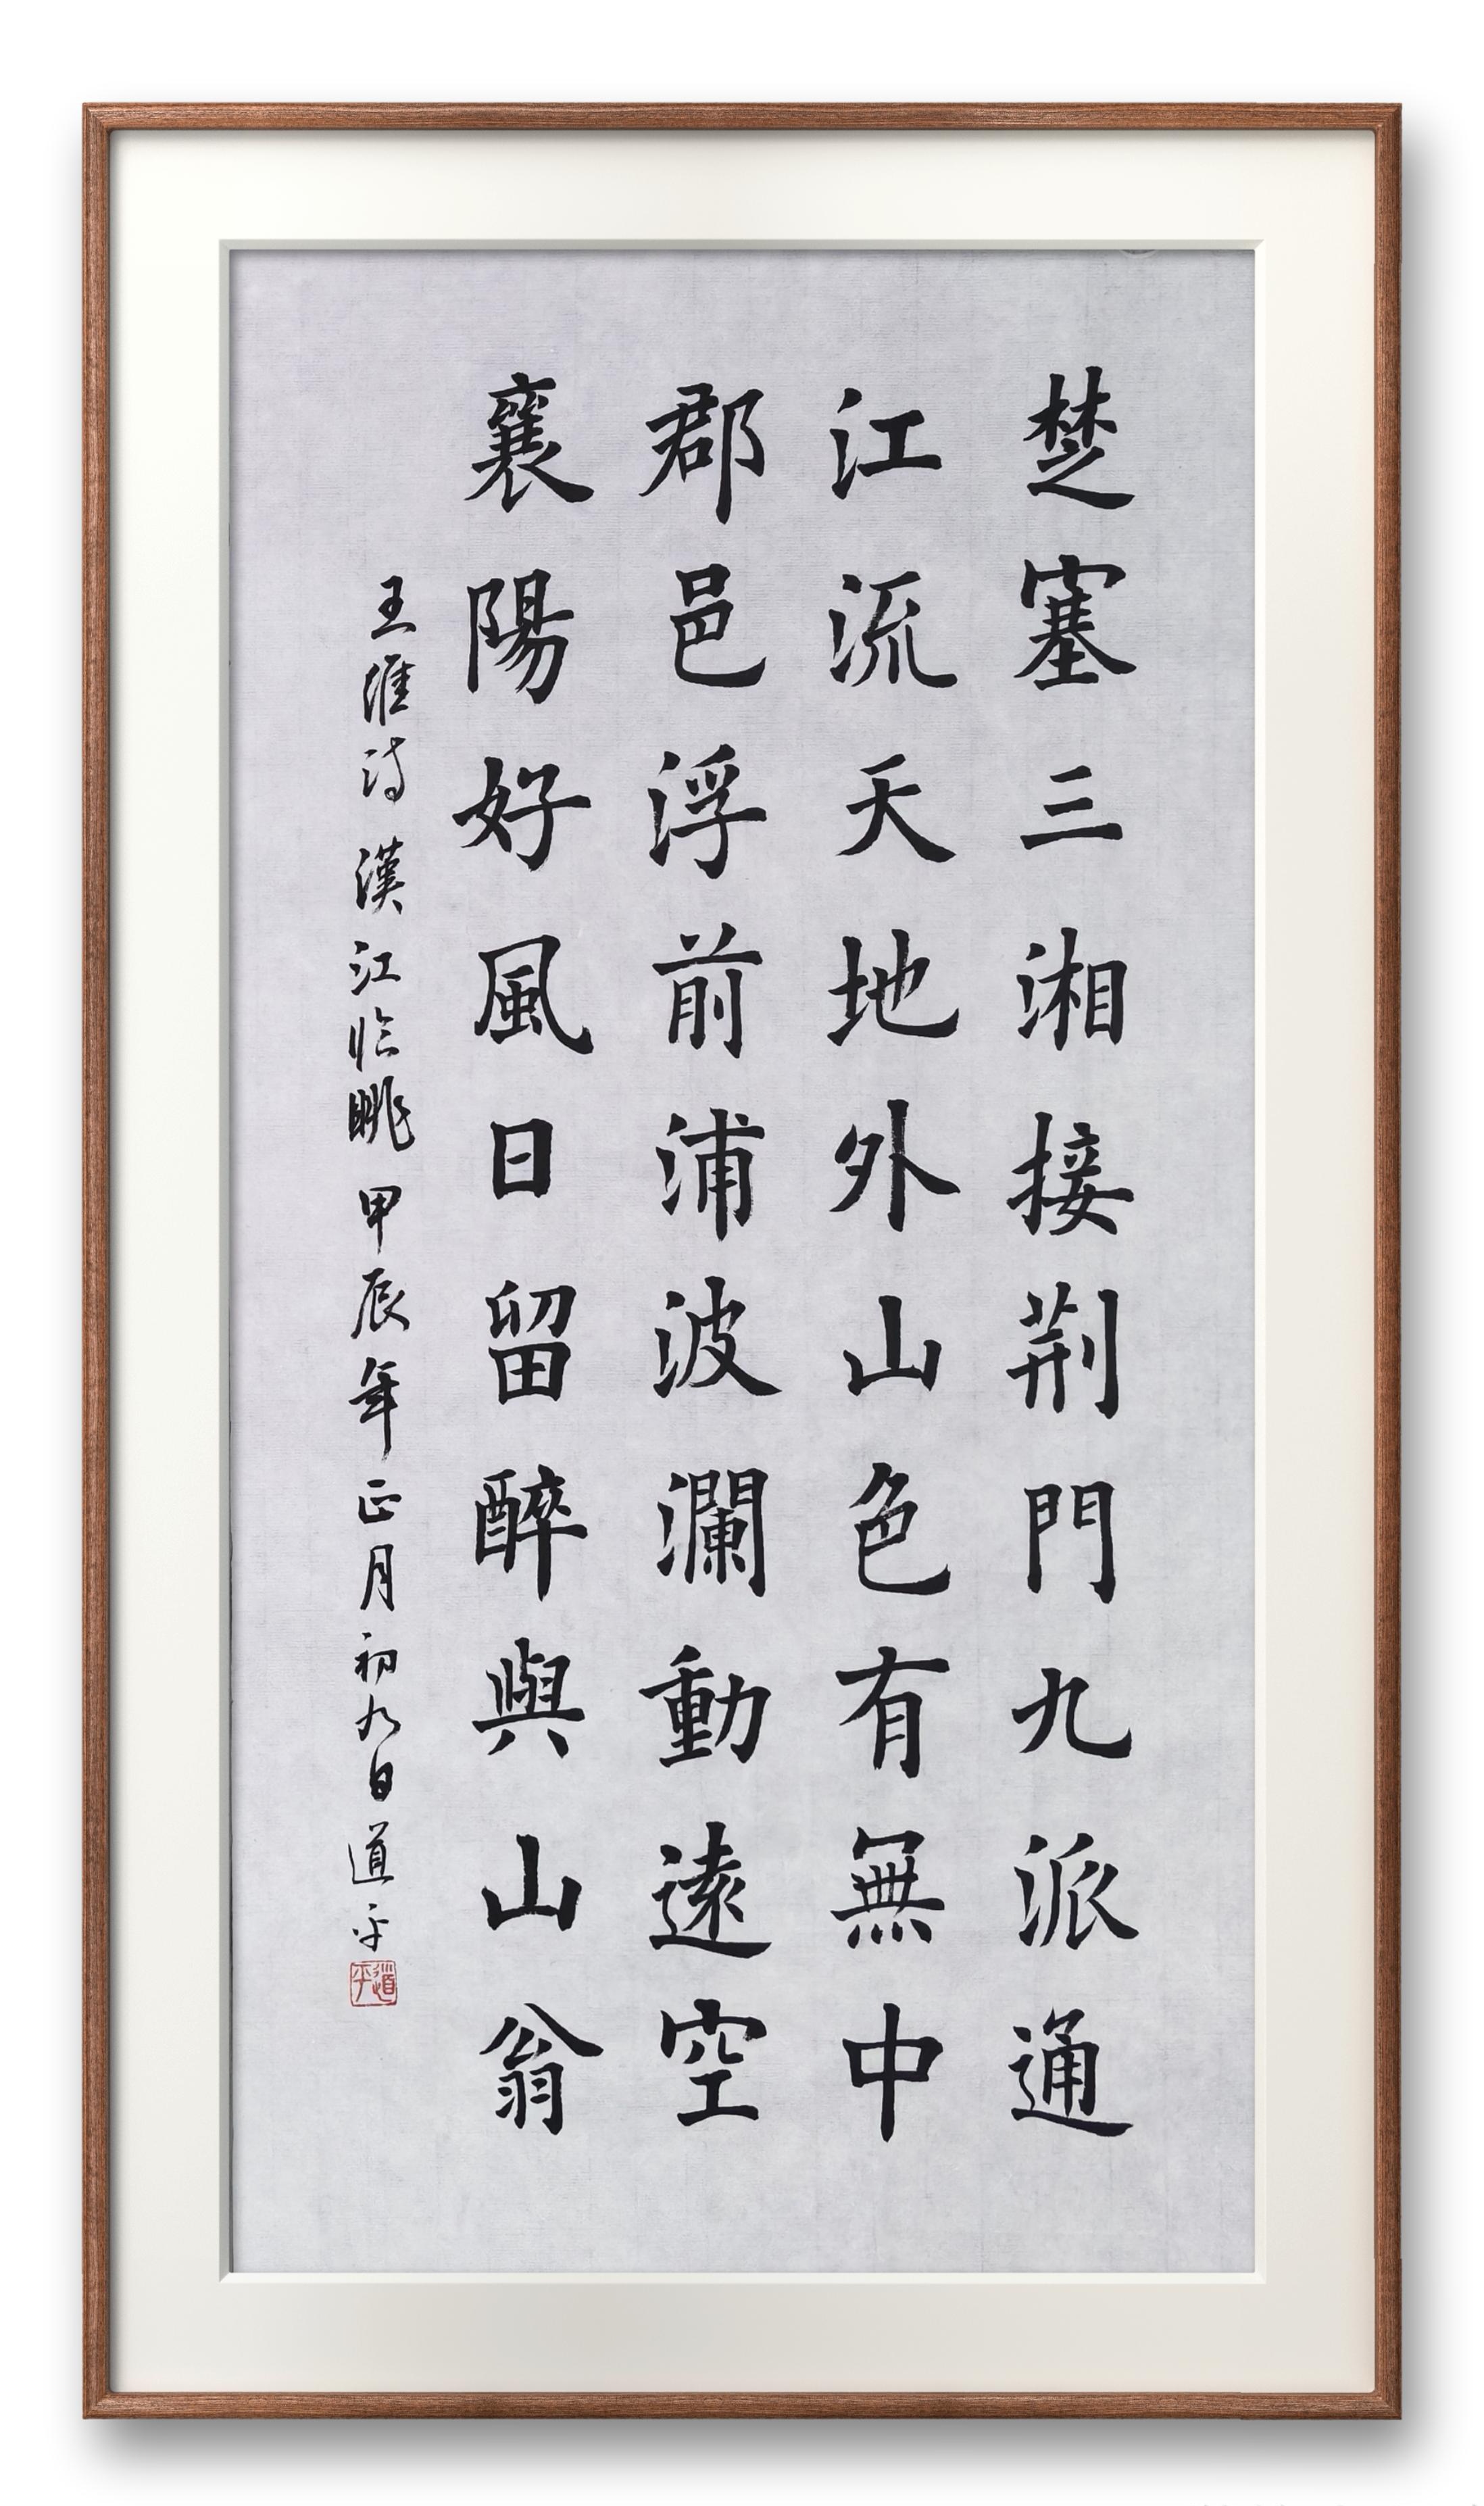 楚塞三湘接荆門九派通
江流天地外山色有無中
郡邑浮前浦波瀾動遠空
襄陽好風日留醉與山翁
王維詩漢江临眺甲辰年正月初九日道平
道平